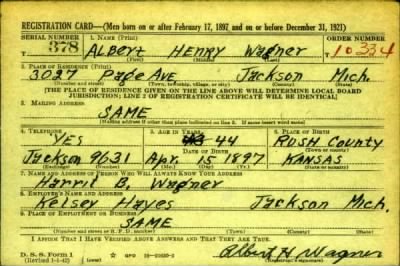 REGISTRATION CARD—(Men born on or after February 17, 1897 and on or before December 31, 1921)
SERIAL NUMBER 1. NAME (Print) ORDER NUMBER
378 Albert Henry Wagner 10334
(First) (Middle) (Last)
2. PLACE OF RESIDENCE (Print)
3027 Page Ave Jackson Mich.
(Number and street) (Town, township, village, or city) (County) (State)
[THE PLACE OF RESIDENCE GIVEN ON THE LINE ABOVE WILL DETERMINE LOCAL BOARD
JURISDICTION; LINE 2 OF REGISTRATION CERTIFICATE WILL BE IDENTICAL]
3. MAILING ADDRESS
SAME
(Mailing address if other than place indicated on line 2. If same insert word same)
4. TELEPHONE 5. AGE IN YEARS 6. PLACE OF BIRTH
YES 44 RUSH COUNTY
DATE OF BIRTH (Town or county)
Jackson 9631 Apr. 15 1897 KANSAS
7. NAME AND ADDRESS OF PERSON WHO WILL ALWAYS KNOW YOUR ADDRESS
B. Wagner
8. EMPLOYER'S NAME AND ADDRESS
Kelsey Hayes Jackson Mich.
9. PLACE OF EMPLOYMENT OR BUSINESS
SAME
(Number and street or R. F. D. number) (Town) (County) (State)
I AFFIRM THAT I HAVE VERIFIED ABOVE ANSWERS AND THAT THEY ARE TRUE.
D. S. S. Form 1
(Revised 1-1-42) GPO Albert H Wagner
(Registrant's signature)